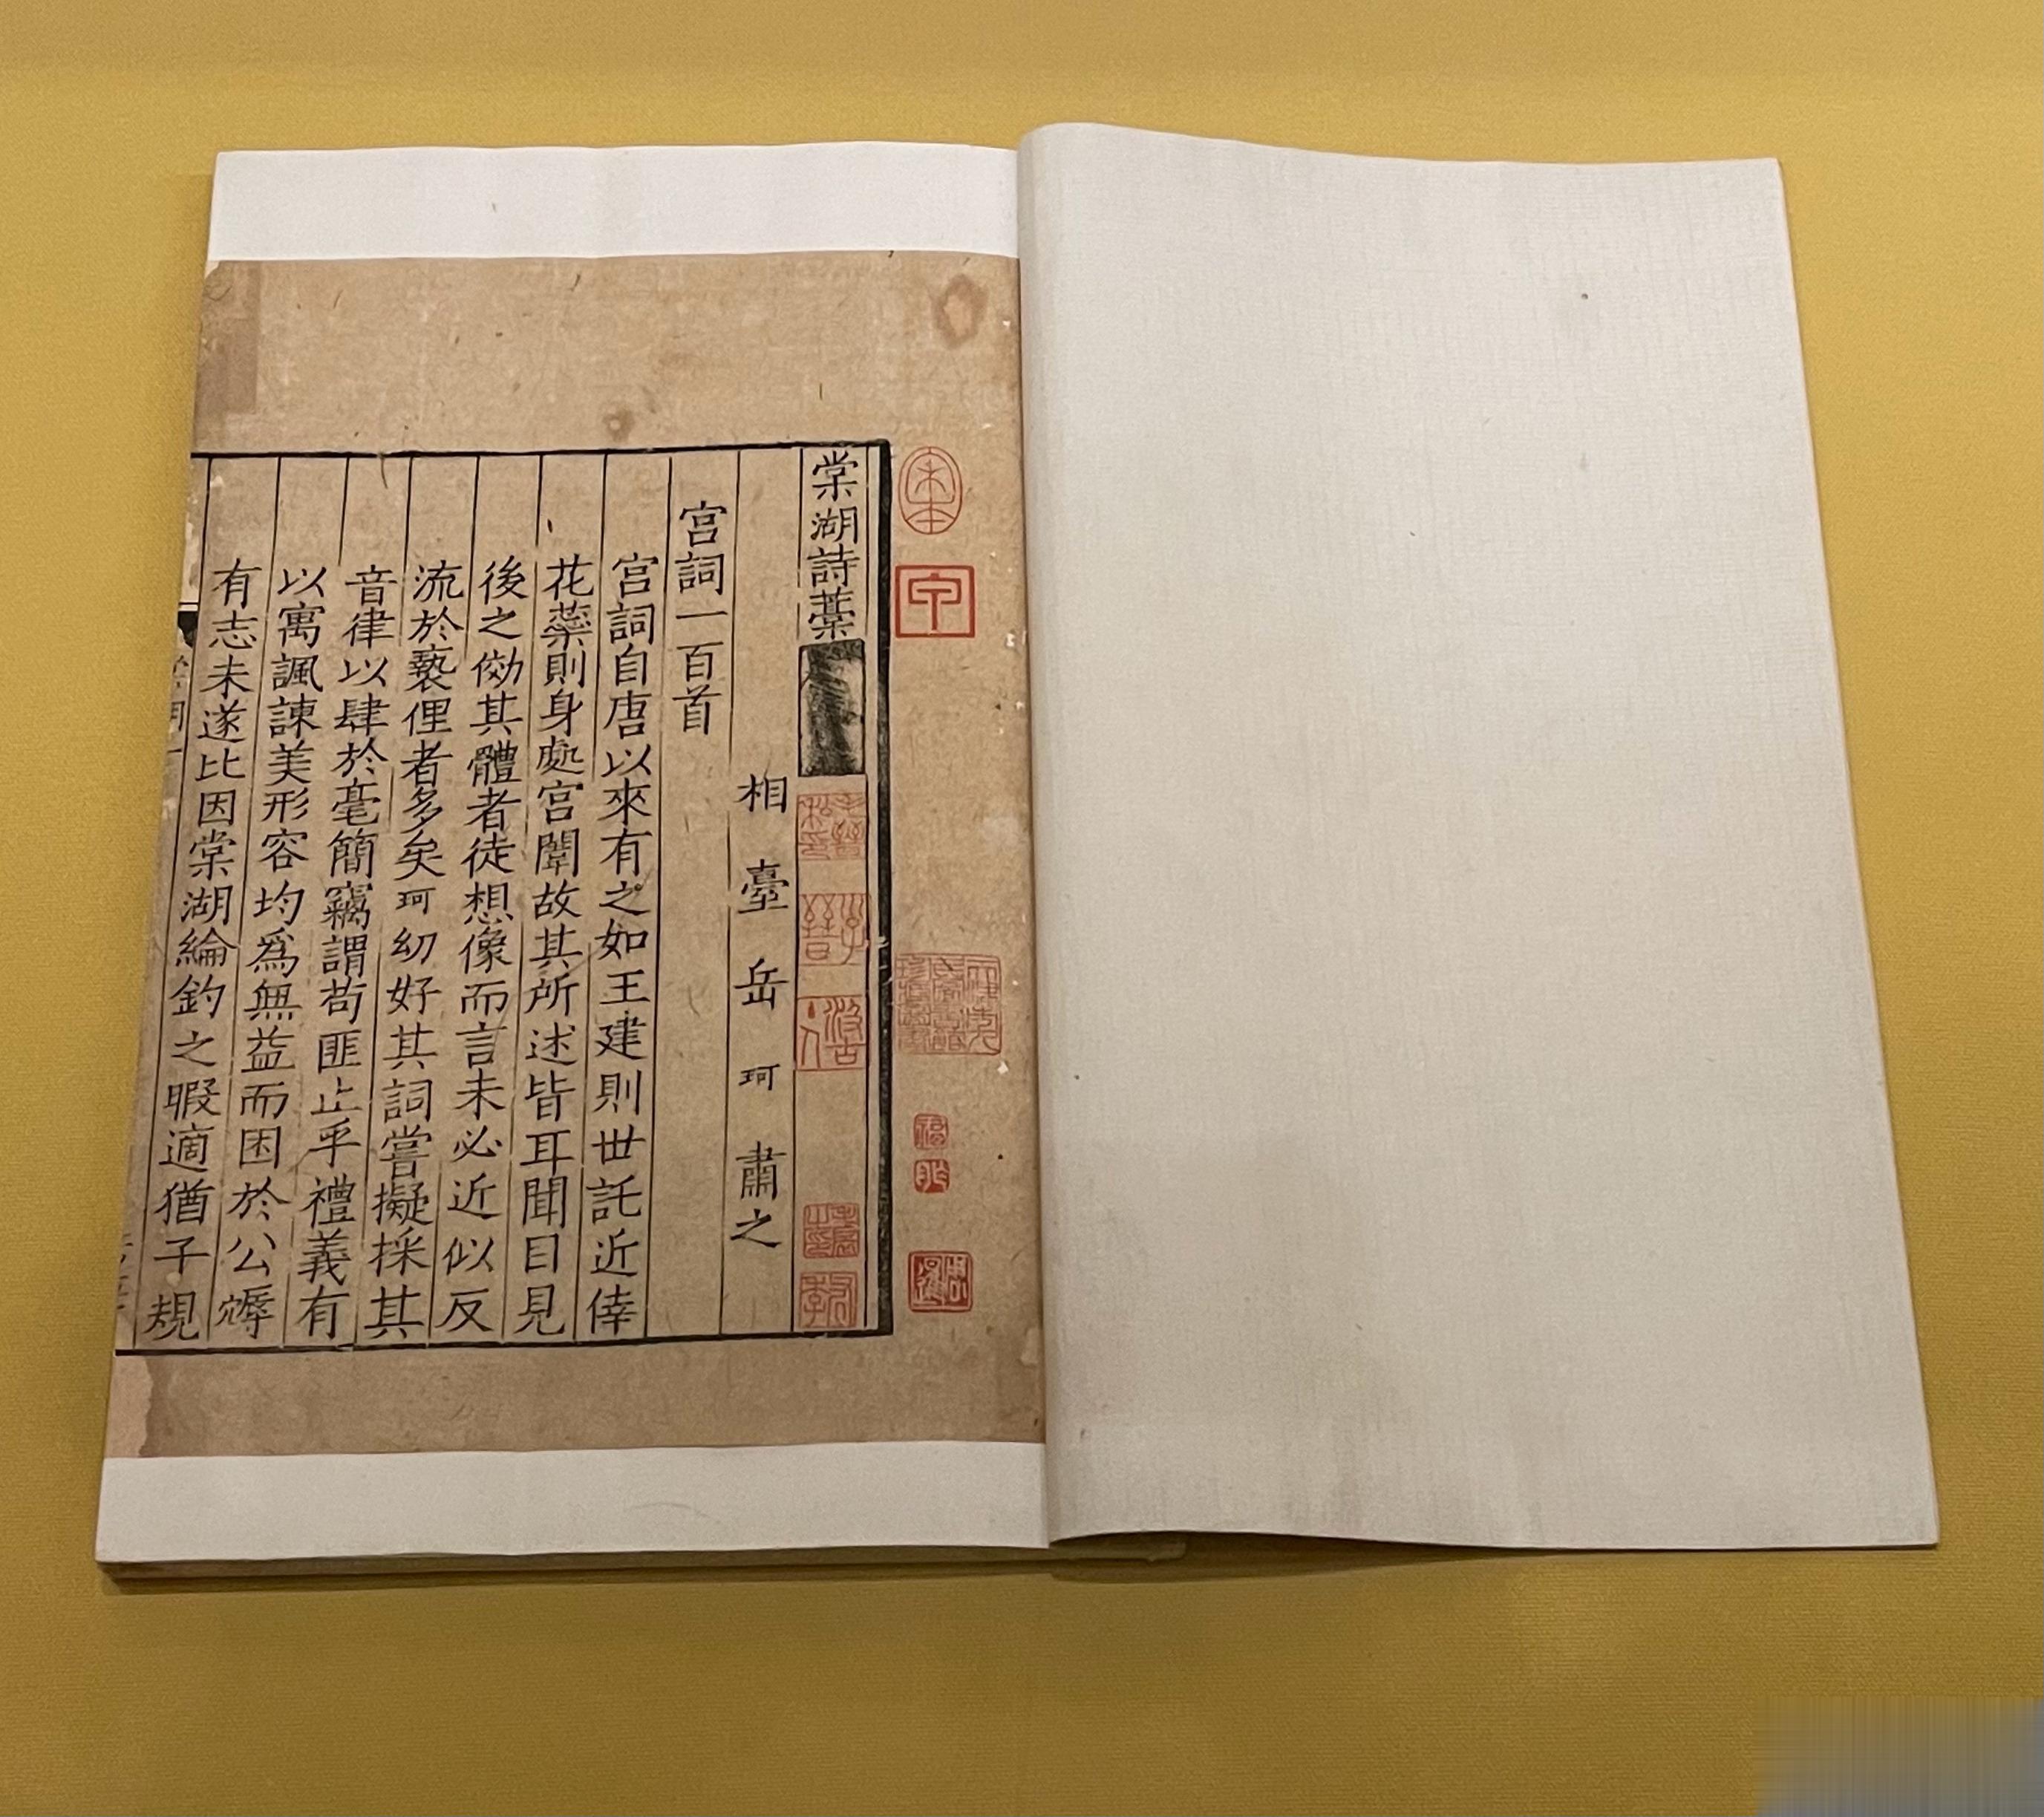 棠湖詩藁
相臺岳珂肅之
宮詞一百首
宮詞自唐以來有之如王建則世託近倖
花蘂則身處宮闈故其所述皆耳聞目見
後之効其體者徒想像而言未必近似反
流於褻俚者多矣珂幼好其詞嘗擬採其
音律以肆於毫簡竊謂苟匪止乎禮義有
以寓諷諫美形容均爲無益而困於公
有志未遂比因棠湖綸釣之暇適猶子規
宋本
甲